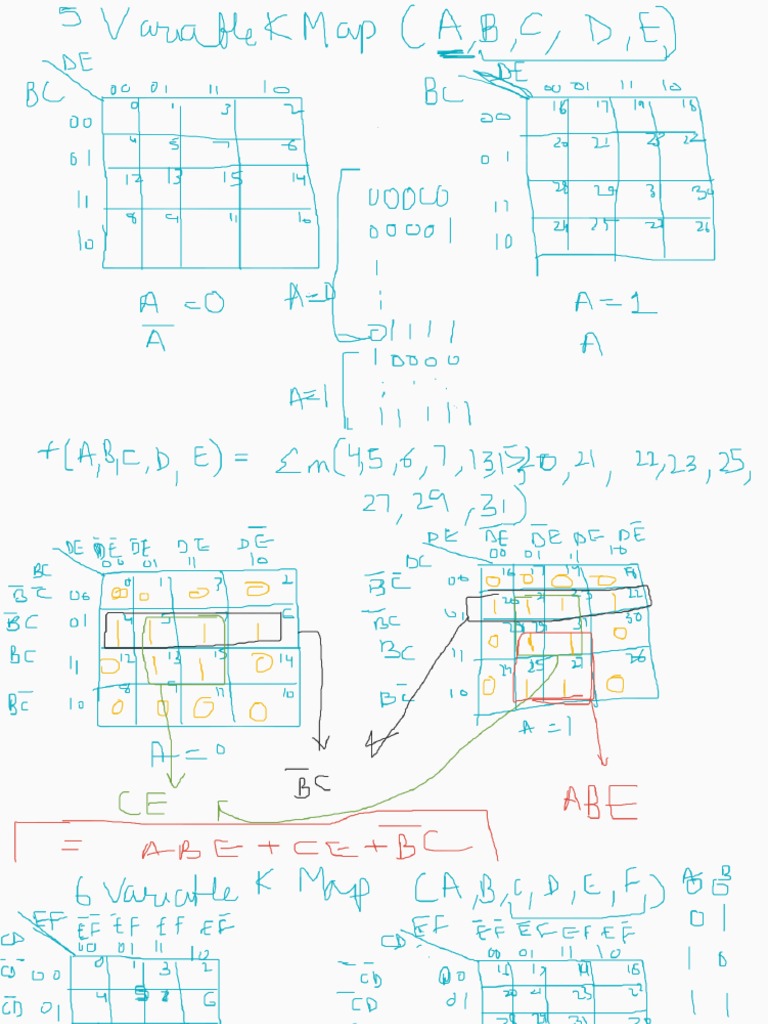 5 Variable K Map (A,B,C, D,E)
DE
BC 00 01 11 10
00 0 1 3 2
01 4 5 7 6
11 12 13 15 14
10 8 9 11 10
A = 0
A̅
DE
BC 00 01 11 10
00 16 17 19 18
01 20 21 23 22
11 28 29 31 30
10 24 25 27 26
A = 1
A
A=0
00000
00001
01111
A=1
10000
11111
f(A,B,C,D,E) = Σm(4,5,6,7,13,15,20,21, 22,23,25,
27,29,31)
DE D̅E̅ D̅E DE DE̅
BC 00 01 11 10
B̅C̅ 00 0 0 1 0 3 0 2
B̅C 01 4 1 5 1 1 1 6
BC 11 0 12 1 13 1 15 0 14
BC̅ 10 0 8 0 9 0 11 0 10
A = 0
DE D̅E̅ D̅E DE DE̅
BC 00 01 11 10
B̅C̅ 00 0 16 0 17 0 19 0 18
B̅C 01 1 20 1 1 1 22
BC 11 0 1 1 31 0 30
BC̅ 10 0 24 1 25 1 27 0 26
A = 1
B̅C
CE
ABE
= ABE + CE + B̅C
6 Variable K Map (A,B,C,D,E,F)
A B
0 0
0 1
1 0
1 1
EF E̅F̅ E̅F EF EF̅
CD 00 01 11 10
C̅D̅ 00 0 1 3 2
C̅D 01 4 5 7 6
EF E̅F̅ E̅F EF EF̅
CD 00 01 11 10
C̅D̅ 00 16 17 19 18
C̅D 01 20 21 23 22